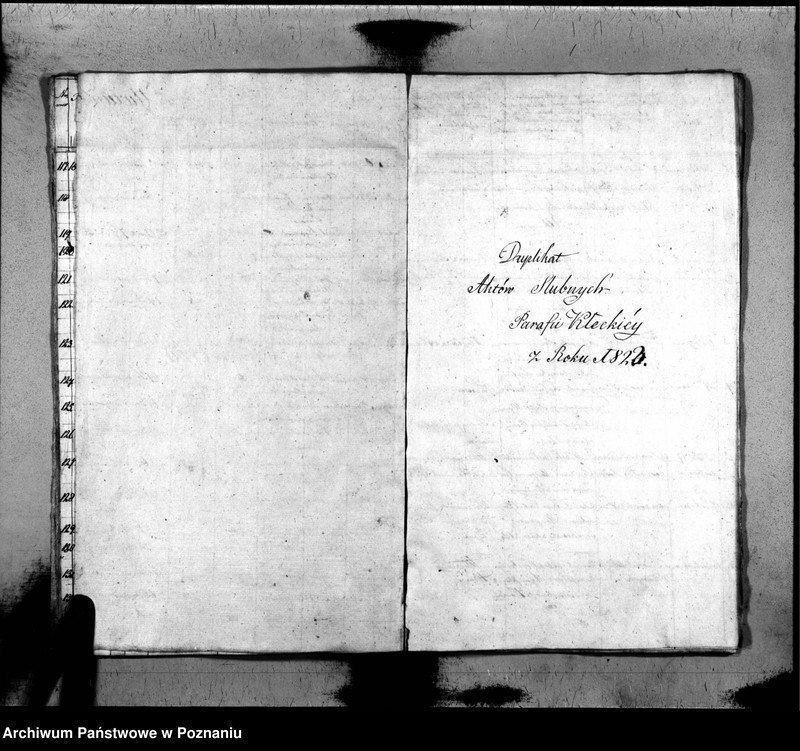 117
118
119
120
121
122
123
124
125
126
127
128
129
130
Duplikat
Aktów Slubnych
Parafii Kłeckiéy
z Roku 1823.
Archiwum Państwowe w Poznaniu